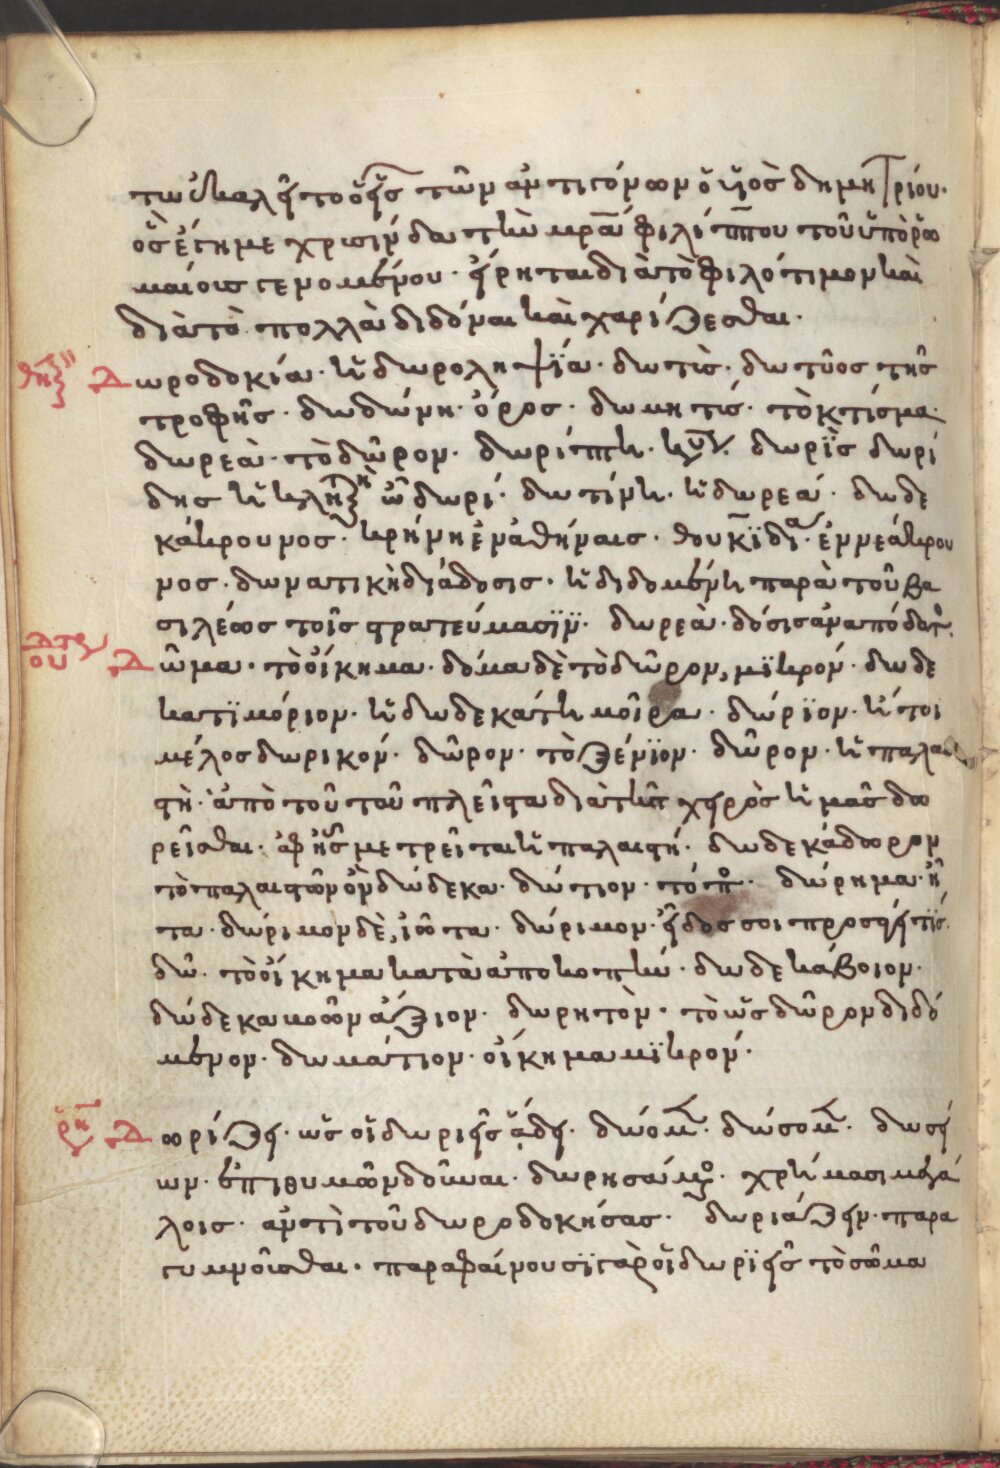 τω ἐκαλεῖτο ὁ εἷς τῶν ἀντιγόνων ὁ υἱὸς δημητρίου.
ὃς ἔσχημε χρυσηίδα τὴν μρα φιλίππου τοῦ ὑπὸ ῥω
μαίοις γενομένου. εἴρηται διὰ τὸ φιλότιμον καὶ
διὰ τὸ πολλὰ διδόναι καὶ χαρίζεσθαι.
θη
Δωροδοκία. ἡ δωροληψΐα. δωτὶς. δωτῦος τῆς
τροφῆς. δωδώνη. ὄρος. δωμητίς. τὸ κτίσμα.
δωρεὰ. τὸ δῶρον. δωρίππη. κυ. δωρΐς δωρί
δης ἡ κλητικὴ ὦ δωρί. δωτίνη. ἡ δωρεά. δωδε
κάκρουνος. κρήνη ἐν ἀθήναις. θουκϊδι. ἐννεάκρου
νος. δωνατικὴ διάδοσις. ἡ διδομένη παρὰ τοῦ βα
σιλέως τοῖς στρατεύμασϊν. δωρεὰ. δόσις ἀναπόδοτ.
ου
Δῶμα. τὸ οἴκημα. δόμα δὲ τὸ δῶρον, μϊκρόν. δωδε
κατϊμόριον. ἡ δωδεκάτη μοῖρα. δώρϊον. ἤτοι
μέλος δωρικόν. δῶρον. τὸ ξένϊον. δῶρον. ἡ παλαι
στὴ. ἀπὸ τοῦ τὰ πλεῖστα διὰ τῆς χειρὸς ἡμᾶς δω
ρεῖσθαι. ἀφ' ἧς μετρεῖται ἡ παλαιστή. δωδεκάδωρον
τὸ παλαιστῶν ὂν δώδεκα. δώτιον. τόπ. δώρημα. ἦ
τα. δώριμον δὲ, ἰῶτα. δώριμον. εἶδος σοι προσηστΐς.
δῶ. τὸ οἴκημα κατὰ ἀποκοπὴν. δωδεκάβοιον.
δώδεκα βοῶν ἄξιον. δωρητὸν. τὸ ὡς δῶρον διδό
μενον. δωμάτιον. οἴκημα μϊκρόν.
ρη
Δωρίζει. ὡς οἱ δωριεῖς ἄδει. δώομ. δώσομ. δωσεί
ων. ἐπιθυμῶν δοῦναι. δωρησάμ. χρήμασι μεγά
λοις. ἀντὶ τοῦ δωροδοκήσας. δωριάζειν. παρα
γυμνοῖσθαι. παραφαίνουσϊ γὰρ οἱ δωρϊεῖς τὸ σῶμα